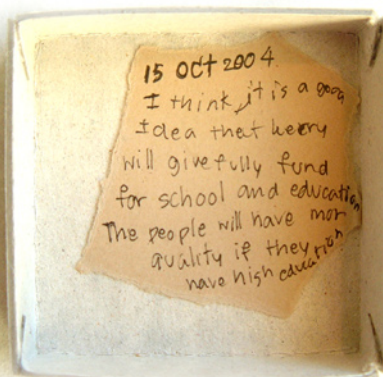 15 OCT 2004.
I think, it is a good
Idea that kerry
will give fully fund
for school and education
The people will have mor
quality if they
have high education